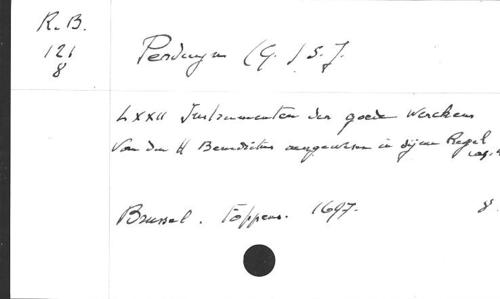 R.B.
121
8
Perduyn (G.) S.J.
LXXII Instrumenten der goede Werckens
Van den H Benedictus aengewesen in sijnen Regel
cap. 4
Brussel. Foppens. 1697. 8.